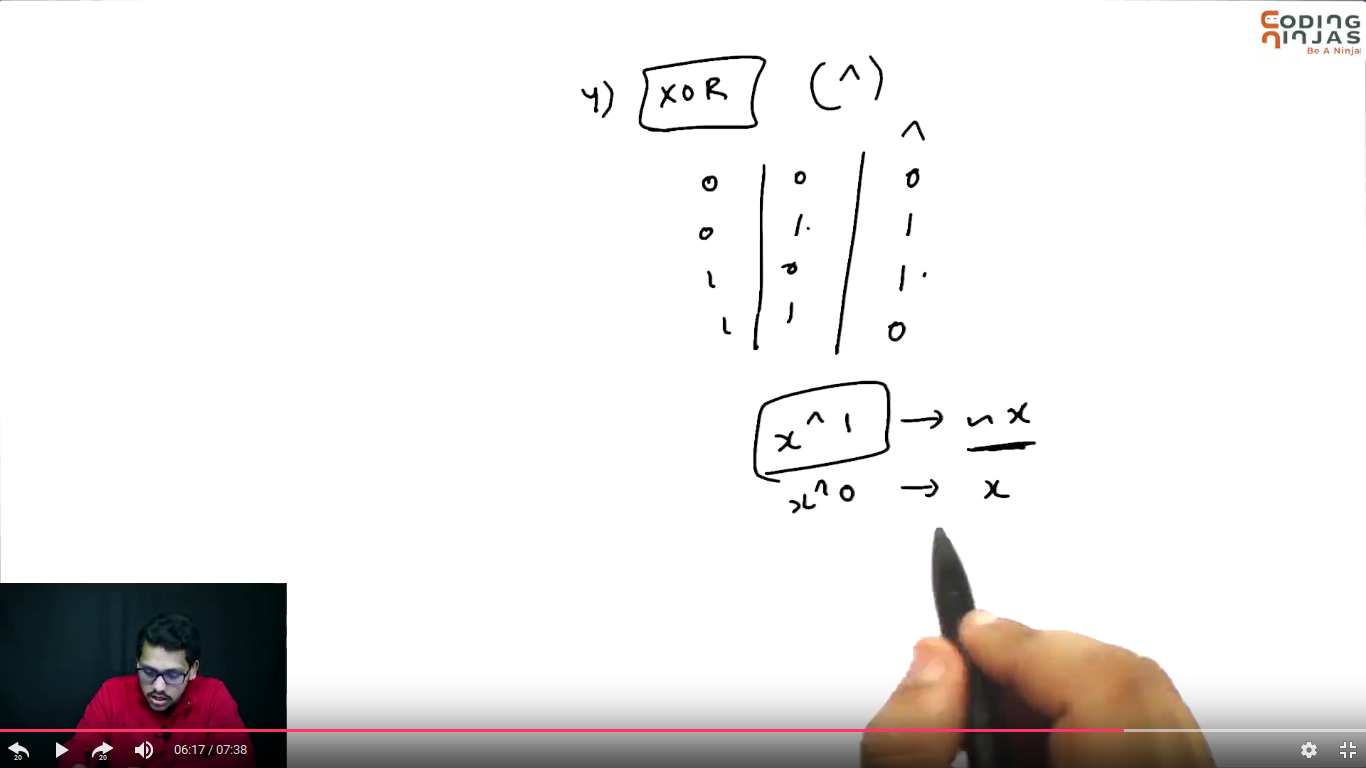 CODING
NINJAS
Be A Ninja
4) XOR (^)
^
0 | 0 | 0
0 | 1. | 1
1 | 0 | 1.
1 | 1 | 0
x ^ 1 → ~x
x ^ 0 → x
20 20 06:17 / 07:38